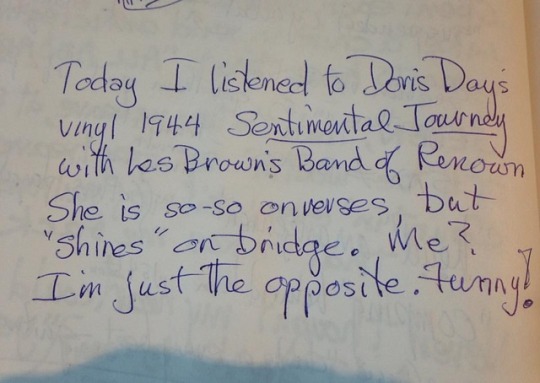 Today I listened to Doris Day's
vinyl 1944 Sentimental Journey
with Les Brown's Band of Renown
She is so-so on verses, but
"shines" on bridge. Me?
I'm just the opposite. Funny!